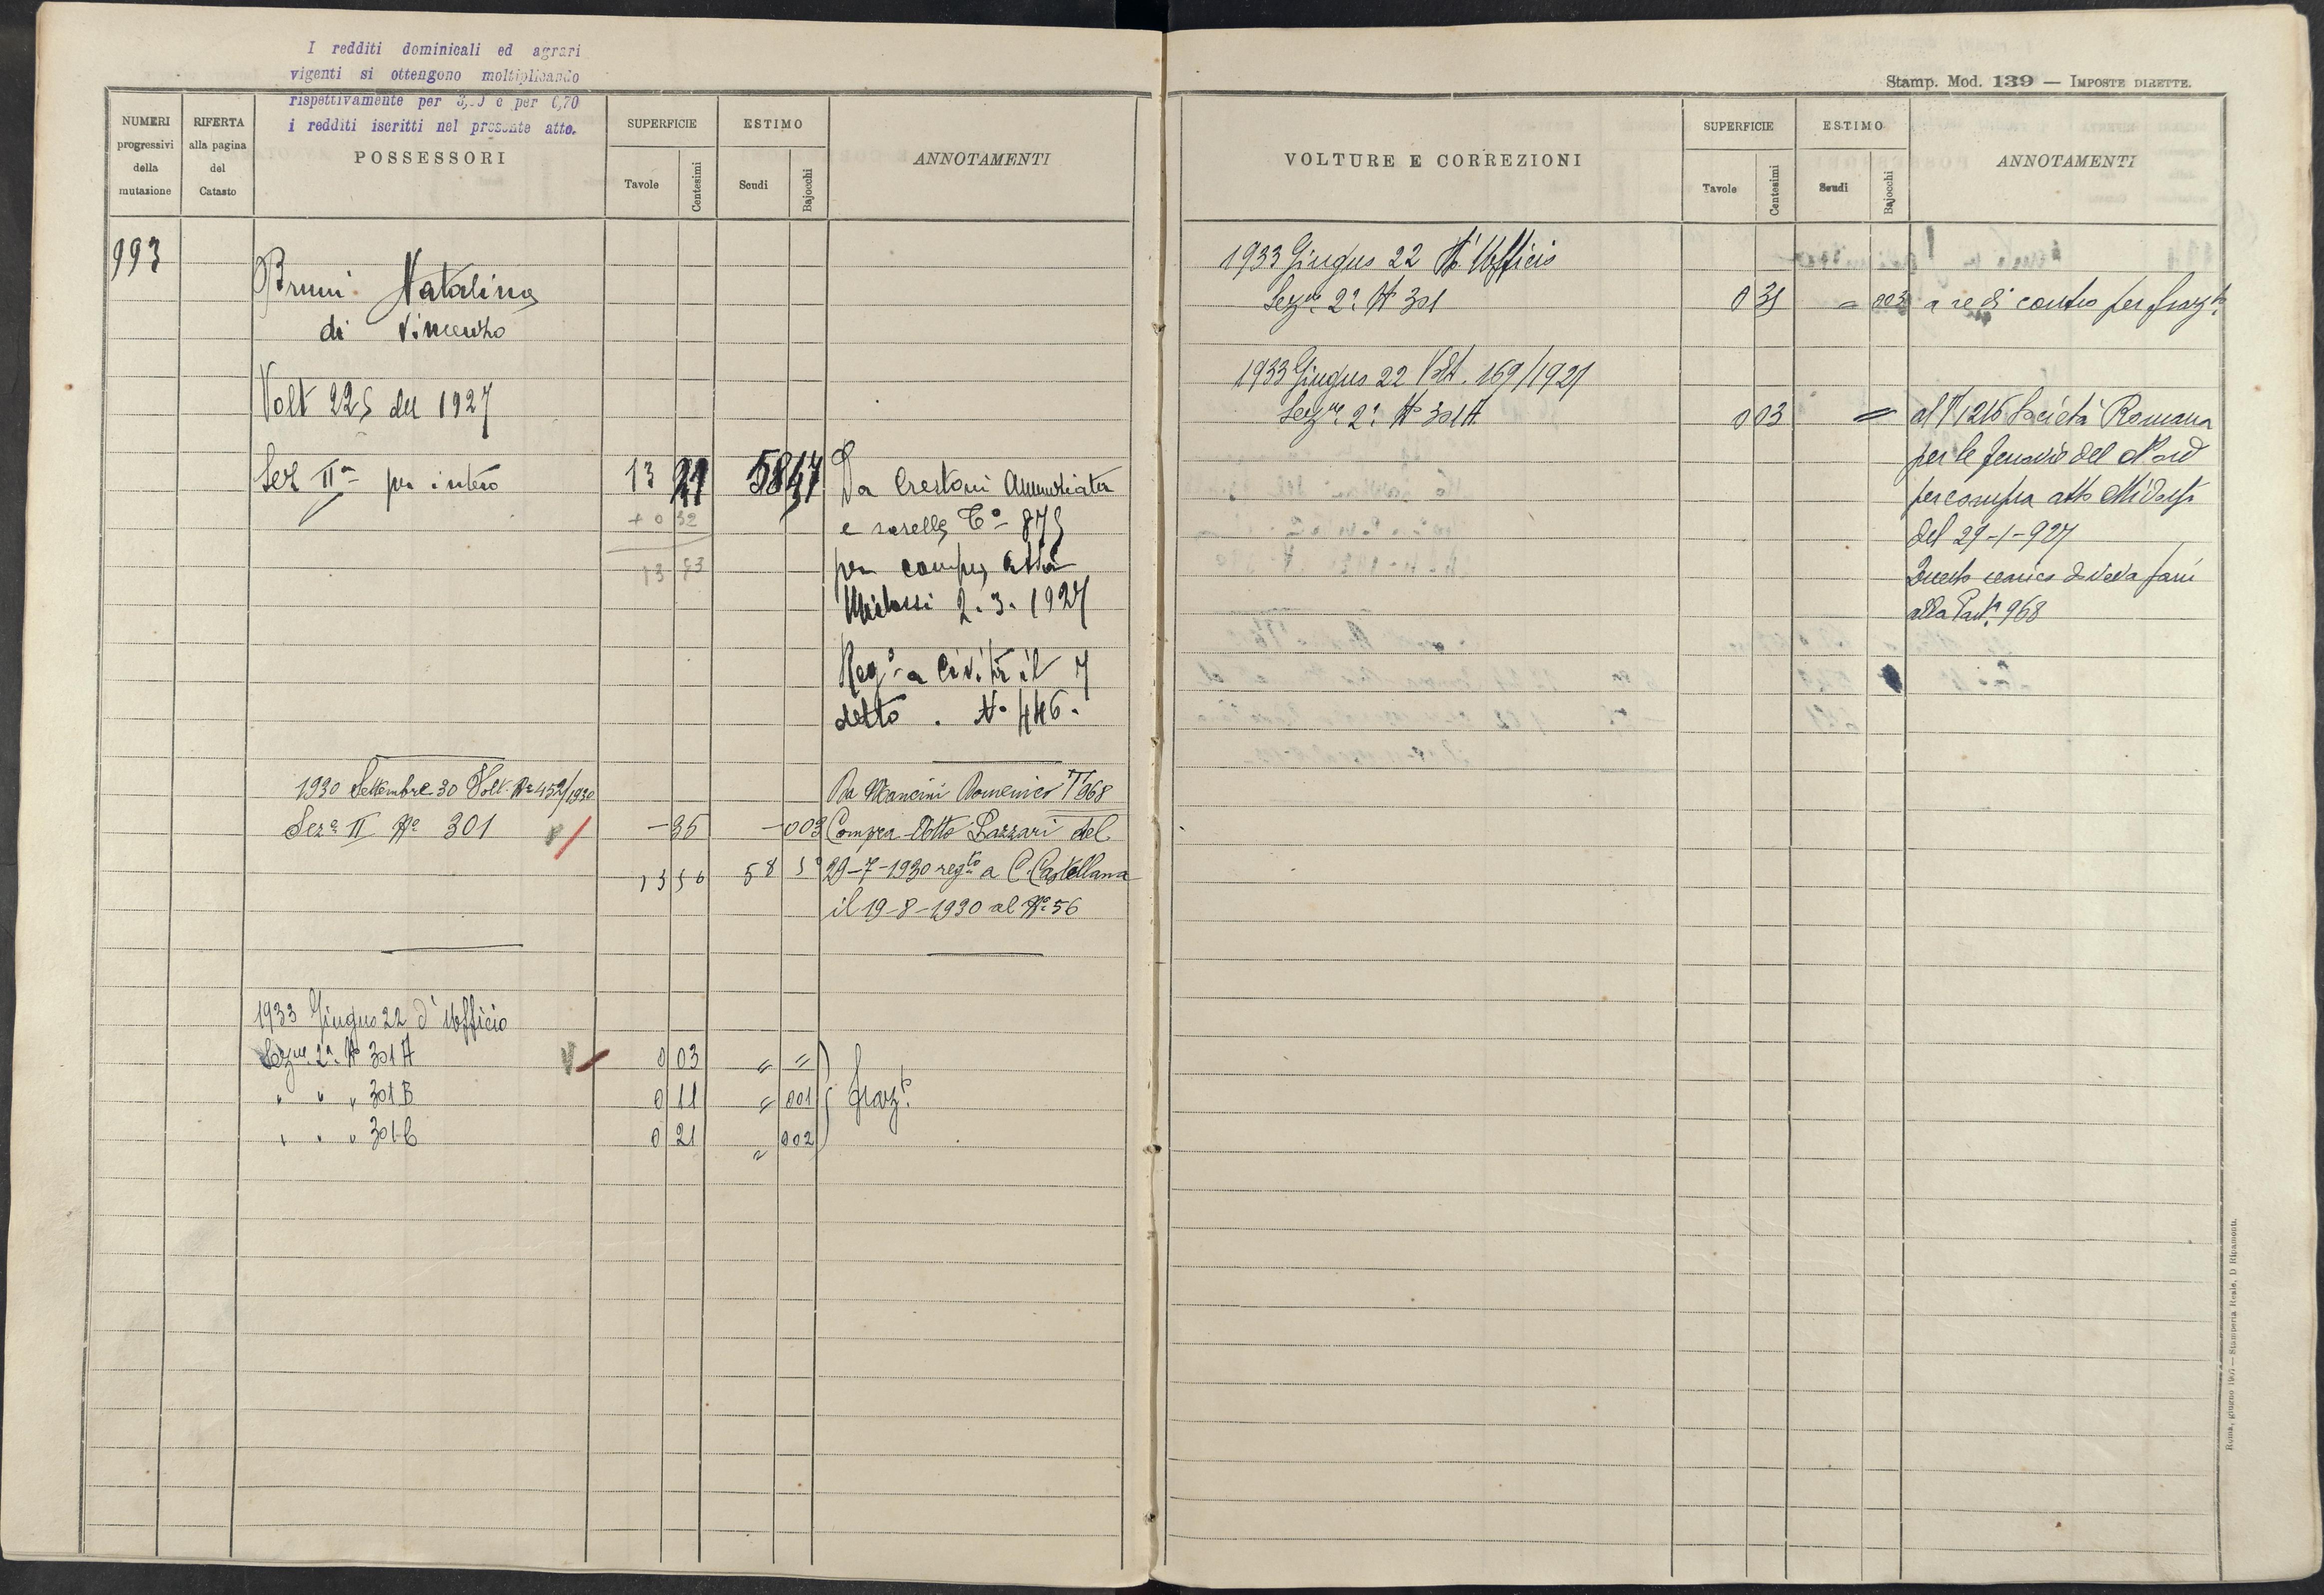 I redditi dominicali ed agrari
vigenti si ottengono moltiplicando
rispettivamente per e per 0,70
i redditi iscritti nel presente atto.
NUMERI progressivi della mutazione
RIFERTA alla pagina del Catasto
POSSESSORI
SUPERFICIE
Tavole
Centesimi
ESTIMO
Scudi
Bajocchi
ANNOTAMENTI
993
Bruni Natalina
di Vincenzo
Volt 225 del 1927
Sez IIª per intero 13 21 58 47 Da Crestoni Annunziata
+ 0 32 e sorelle Tº 875
13 53 per compra atto
Midossi 2.3.1927
Regº a Civita il 7
detto. Nº 446.
1930 Settembre 30 Volt. Nº 452/1930 Da Mancini Domenico Tº 968
Sezº II Nº 301 — 35 — 003 Compra Atto Lazzari del
13 56 58 50 29-7-1930 regto a C. Castellana
il 19-8-1930 al Nº 56
1933 Giugno 22 d'Ufficio
Sezne 2ª Nº 301 A 0 03 " "
" " " 301 B 0 11 " 001 frazto
" " " 301 C 0 21 " 002
Stamp. Mod. 139 — IMPOSTE DIRETTE.
VOLTURE E CORREZIONI
SUPERFICIE
Tavole
Centesimi
ESTIMO
Scudi
Bajocchi
ANNOTAMENTI
1933 Giugno 22 d'Ufficio
Sezne 2ª Nº 301 0 35 = 003 a re di contro per frazto
1933 Giugno 22 Volt. 169/1927
Sezne 2ª Nº 301 A 0 03 = al Tº 1216 Società Romana
per le ferrovie del Nord
per compra atto Midossi
del 29-1-927
Questo scarico doveva farsi
alla Parta 968
Roma, giugno — Stamperia Reale, D. Ripamonti.